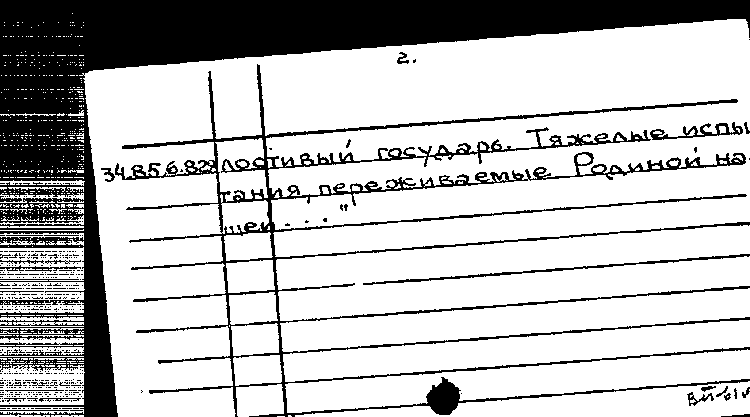 2.
34.85.6.829 лостивый государь. Тяжелые испы
тания, переживаемые Родиной на
шей . . . "